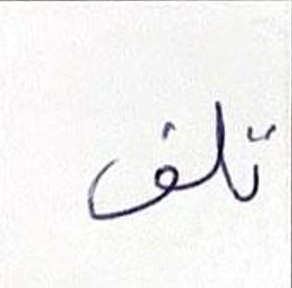 تلف